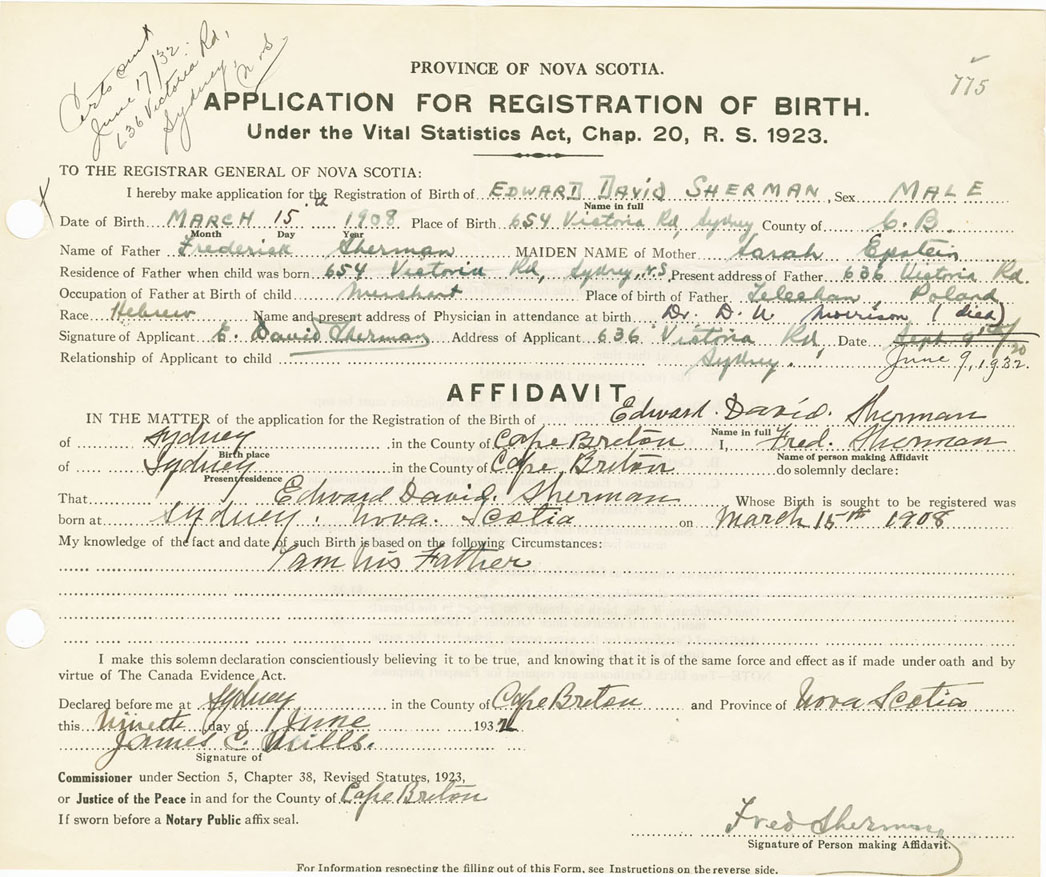 Certs sent
June 17/32
636 Victoria Rd,
Sydney, N.S
775
PROVINCE OF NOVA SCOTIA.
APPLICATION FOR REGISTRATION OF BIRTH.
Under the Vital Statistics Act, Chap. 20, R. S. 1923.
TO THE REGISTRAR GENERAL OF NOVA SCOTIA:
I hereby make application for the Registration of Birth of EDWARD DAVID SHERMAN Sex MALE
Name in full
Date of Birth MARCH 15th 1908 Place of Birth 654 Victoria Rd, Sydney County of C.B.
Month Day Year
Name of Father Frederick Sherman MAIDEN NAME of Mother Sarah Epstein
Residence of Father when child was born 654 Victoria Rd, Sydney, N.S. Present address of Father 636 Victoria Rd.
Occupation of Father at Birth of child Merchant Place of birth of Father Poland
Race Hebrew Name and present address of Physician in attendance at birth Dr. D. A Morrison (died)
Signature of Applicant E. David Sherman Address of Applicant 636 Victoria Rd, Date Sept 9th/30
Relationship of Applicant to child Sydney. June 9, 1932.
AFFIDAVIT
IN THE MATTER of the application for the Registration of the Birth of Edward. David. Sherman
Name in full
of Sydney in the County of Cape Breton I, Fred. Sherman
Birth place Name of person making Affidavit
of Sydney in the County of Cape Breton do solemnly declare:
Present residence
That Edward David. Sherman Whose Birth is sought to be registered was
born at Sydney. Nova. Scotia on March 15th 1908
My knowledge of the fact and date of such Birth is based on the following Circumstances:
I am his Father
I make this solemn declaration conscientiously believing it to be true, and knowing that it is of the same force and effect as if made under oath and by
virtue of The Canada Evidence Act.
Declared before me at Sydney in the County of Cape Breton and Province of Nova Scotia
this Nineth day of June 1932
James C. Mills.
Signature of
Commissioner under Section 5, Chapter 38, Revised Statutes, 1923,
or Justice of the Peace in and for the County of Cape Breton
If sworn before a Notary Public affix seal.
Fred Sherman
Signature of Person making Affidavit.
For Information respecting the filling out of this Form, see Instructions on the reverse side.